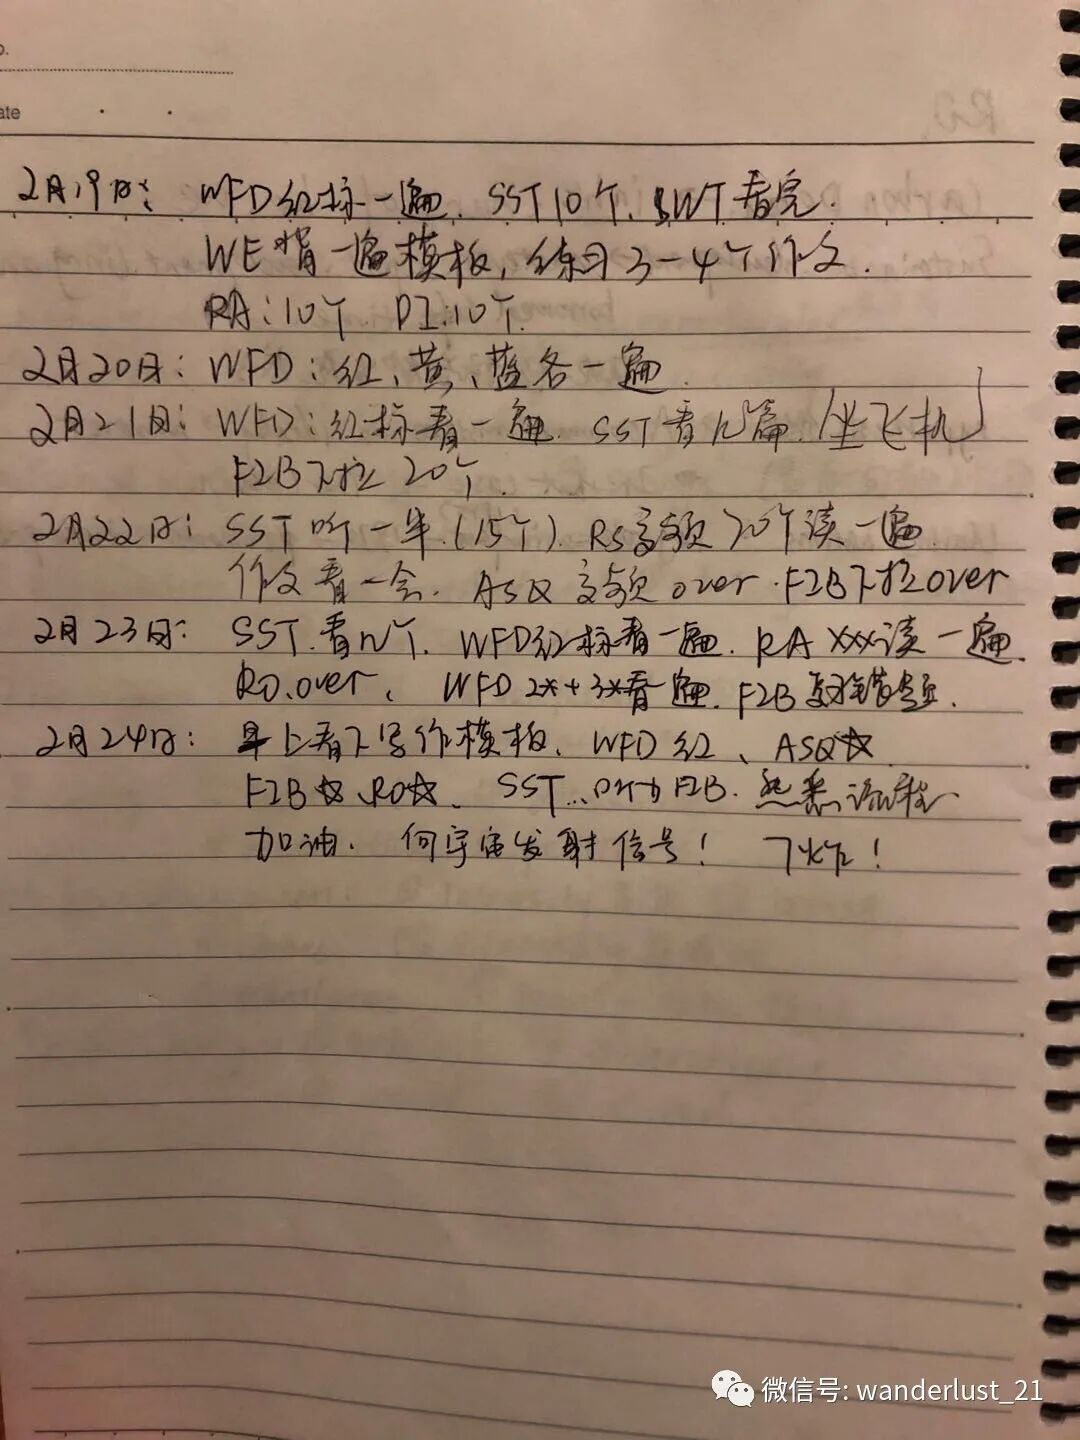 ate
2月19日: WFD红标一遍. SST10个. SWT看完.
WE背一遍模板, 练习3-4个作文.
RA:10个 DI:10个.
2月20日: WFD:红、黄、蓝各一遍.
2月21日: WFD:红标看一遍. SST看几篇. (坐飞机)
FIB下拉20个.
2月22日: SST听一半.(15个). RS高频70个读一遍.
作文看一会. ASQ高频over.FIB下拉over
2月23日: SST.看几个. WFD红标看一遍. RA xxx读一遍.
RO.over、 WFD 2*+3*看一遍. FIB 错题.
2月24日: 早上看下写作模板、WFD红、ASQ☆
FIB☆、RO☆、SST... FIB. 熟悉流程
加油. 向宇宙发射信号! 7炸!
微信号: wanderlust_21